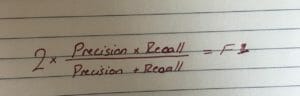 2 × Precision × Recall / Precision + Recall = F1